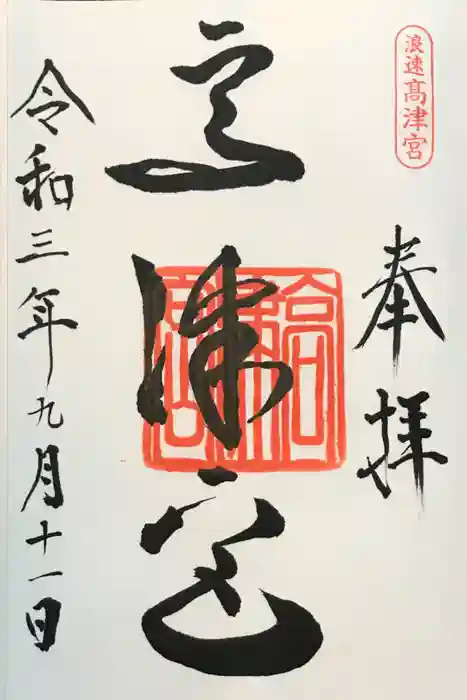 浪速高津宮
奉拝
高津宮
令和三年九月十一日